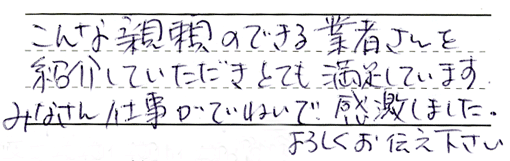 こんな親頼のできる業者さんを
紹介していただきとても満足しています
みなさん仕事がていねいで感激しました。
よろしくお伝え下さい